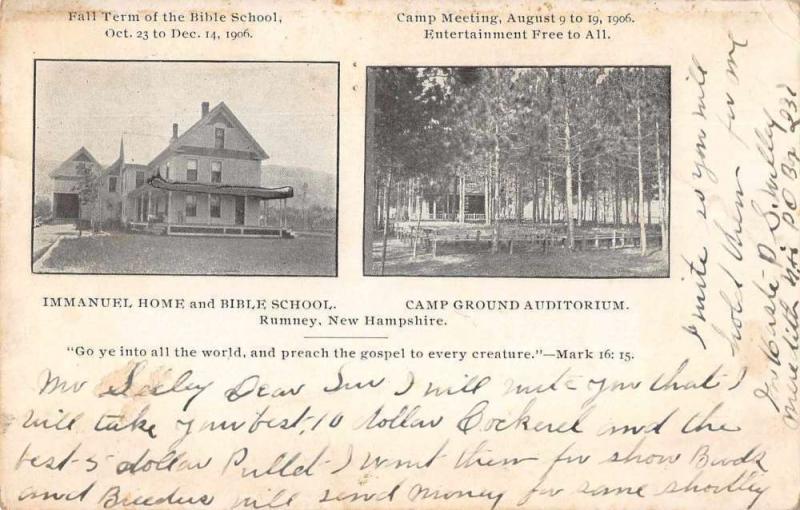 Fall Term of the Bible School,
Oct. 23 to Dec. 14, 1906.
Camp Meeting, August 9 to 19, 1906.
Entertainment Free to All.
IMMANUEL HOME and BIBLE SCHOOL.
CAMP GROUND AUDITORIUM.
Rumney, New Hampshire.
"Go ye into all the world, and preach the gospel to every creature."—Mark 16: 15.
Mr Seeley Dear Sir I will write you that I
will take your best 10 dollar Cockerel and the
best 5 dollar Pullet I want them for show Birds
and Breeders will send Money for same shortly
I write so you will
hold them for me
In Haste D S
Meredith N H P O Bx 231